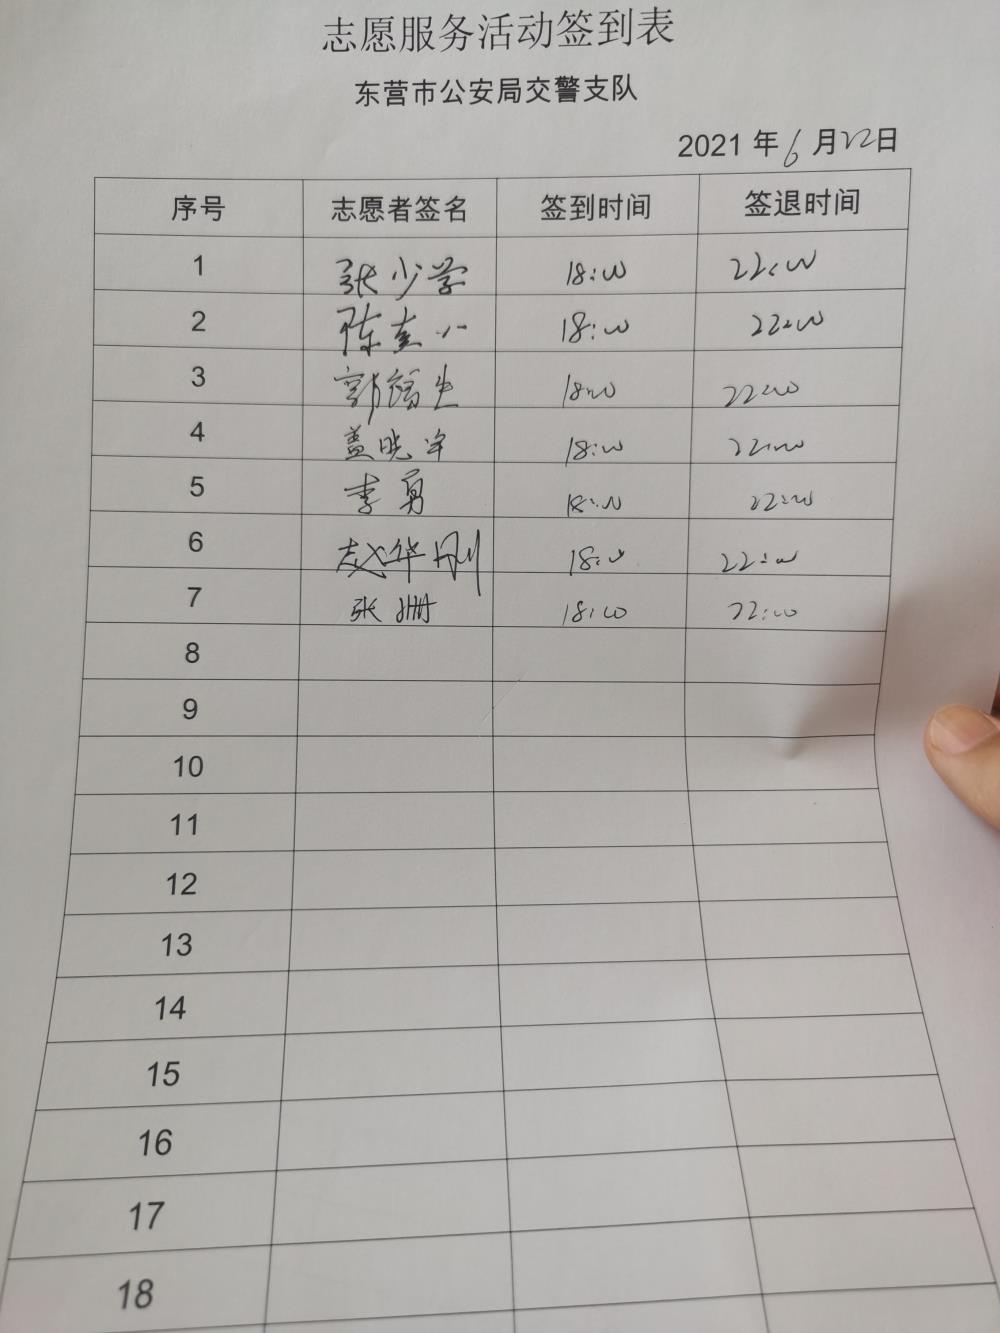 志愿服务活动签到表
东营市公安局交警支队
2021 年 6 月 22 日
序号 志愿者签名 签到时间 签退时间
1 张少学 18:00 22:00
2 陈 18:00 22:00
3 郭 18:00 22:00
4 盖晓 18:00 22:00
5 李勇 18:00 22:00
6 赵华刚 18:00 22:00
7 张姗 18:00 22:00
8
9
10
11
12
13
14
15
16
17
18